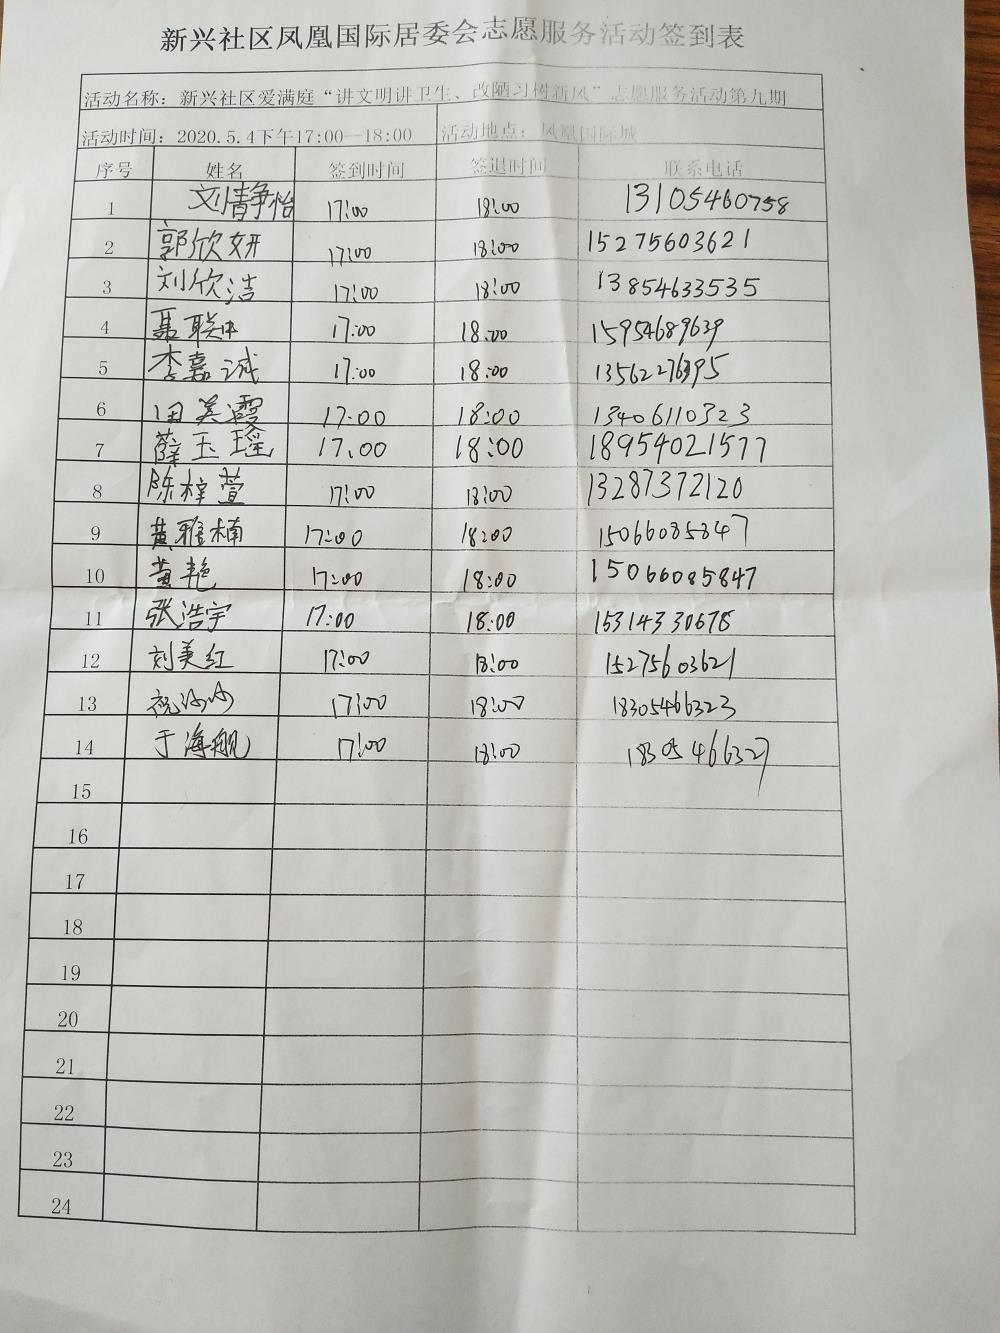 新兴社区凤凰国际居委会志愿服务活动签到表
活动名称：新兴社区爱满庭“讲文明讲卫生、改陋习树新风”志愿服务活动第九期
活动时间：2020.5.4下午17:00—18:00 活动地点：凤凰国际城
序号 姓名 签到时间 签退时间 联系电话
1 刘静怡 17:00 18:00 13105460758
2 郭欣妍 17:00 18:00 15275603621
3 刘欣洁 17:00 18:00 13854633535
4 聂联中 17:00 18:00 15954689639
5 李嘉诚 17:00 18:00 13562276395
6 田美霞 17:00 18:00 13406110323
7 薛玉瑶 17.00 18:00 18954021577
8 陈梓萱 17:00 18:00 13287372120
9 黄雅楠 17:00 18:00 15066085847
10 黄艳 17:00 18:00 15066085847
11 张浩宇 17:00 18:00 15314330678
12 刘美红 17:00 18:00 15275603621
13 祝沙沙 17:00 18:00 18305466323
14 于海舰 17:00 18:00 18305466327
15
16
17
18
19
20
21
22
23
24